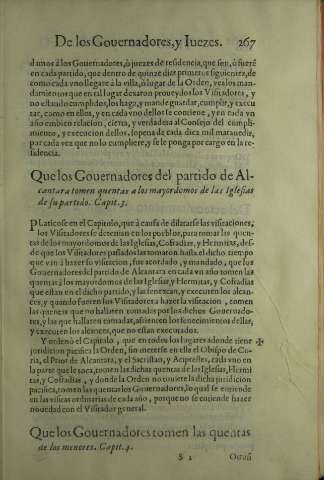 De los Gouernadores, y Iuezes. 267
damos à los Gouernadores, ò juezes de residencia, que son, ò fueré
en cada partido, que dentro de quinze dias primeros siguientes, de
como cada vno llegare à la villa, ò lugar de la Orden, vea los man-
damientos que en tal lugar dexaron proueydos los Visitadores, y
no estando cumplidos, los haga, y mande guardar, cumplir, y execu
tar, como en ellos, y en cada vno dellos se contiene, y en cada vn
año embien relacion, cierta, y verdadera al Consejo del cumpli-
miento, y execucion dellos, so pena de cada diez mil marauedis,
por cada vez que no lo cumpliere, y se le ponga por cargo en la re-
sidencia.
Que los Gouernadores del partido de Al-
cantara tomen quentas a los mayordomos de las Iglesias
de su partido. Capit. 3.
Platicose en el Capitulo, que à causa de dilatarse las visitaciones,
los Visitadores se detenian en los pueblos, para tomar las quen-
tas de los mayordomos de las Iglesias, Cofradias, y Hermitas, des-
de que los Visitadores passados las tomaron hasta el dicho tiempo
que van à hazer su visitacion, fue acordado, y mandado, que los
Gouernadores del partido de Alcantara en cada vn año tomen las
quentas à los mayordomos de las Iglesias, y Hermitas, y Cofradias
que estan en el dicho partido, y las fenezcan, y executen los alcan-
ces, y quando fueren los Visitadores à hazer la visitacion, tomen
las quentas que no hallaren tomadas por los dichos Gouernado-
res, y las que hallaren tomadas, assienten los fenecimientos dellas,
y executen los alcances, que no estan executados.
Y ordenò el Capitulo, que en todos los lugares adonde tiene ✠
jurisdicion pacifica la Orden, sin meterse en ella el Obispo de Co-
ria, el Prior de Alcantara, y el Sacristan, y Aciprestes, cada vno en
la parte que le toca, tomen las dichas quentas de las Iglesias, Hermi
tas, y Cofradias, y donde la Orden no tuuiere la dicha juridicion
pacifica, tomen las quentas los Gouernadores, lo qual se entiende
en las visitas ordinarias de cada año, porque no se entiende hazer
nouedad con el Visitador general.
Que los Gouernadores tomen las quentas
de los menores. Capit. 4.
S 2 Otrosi